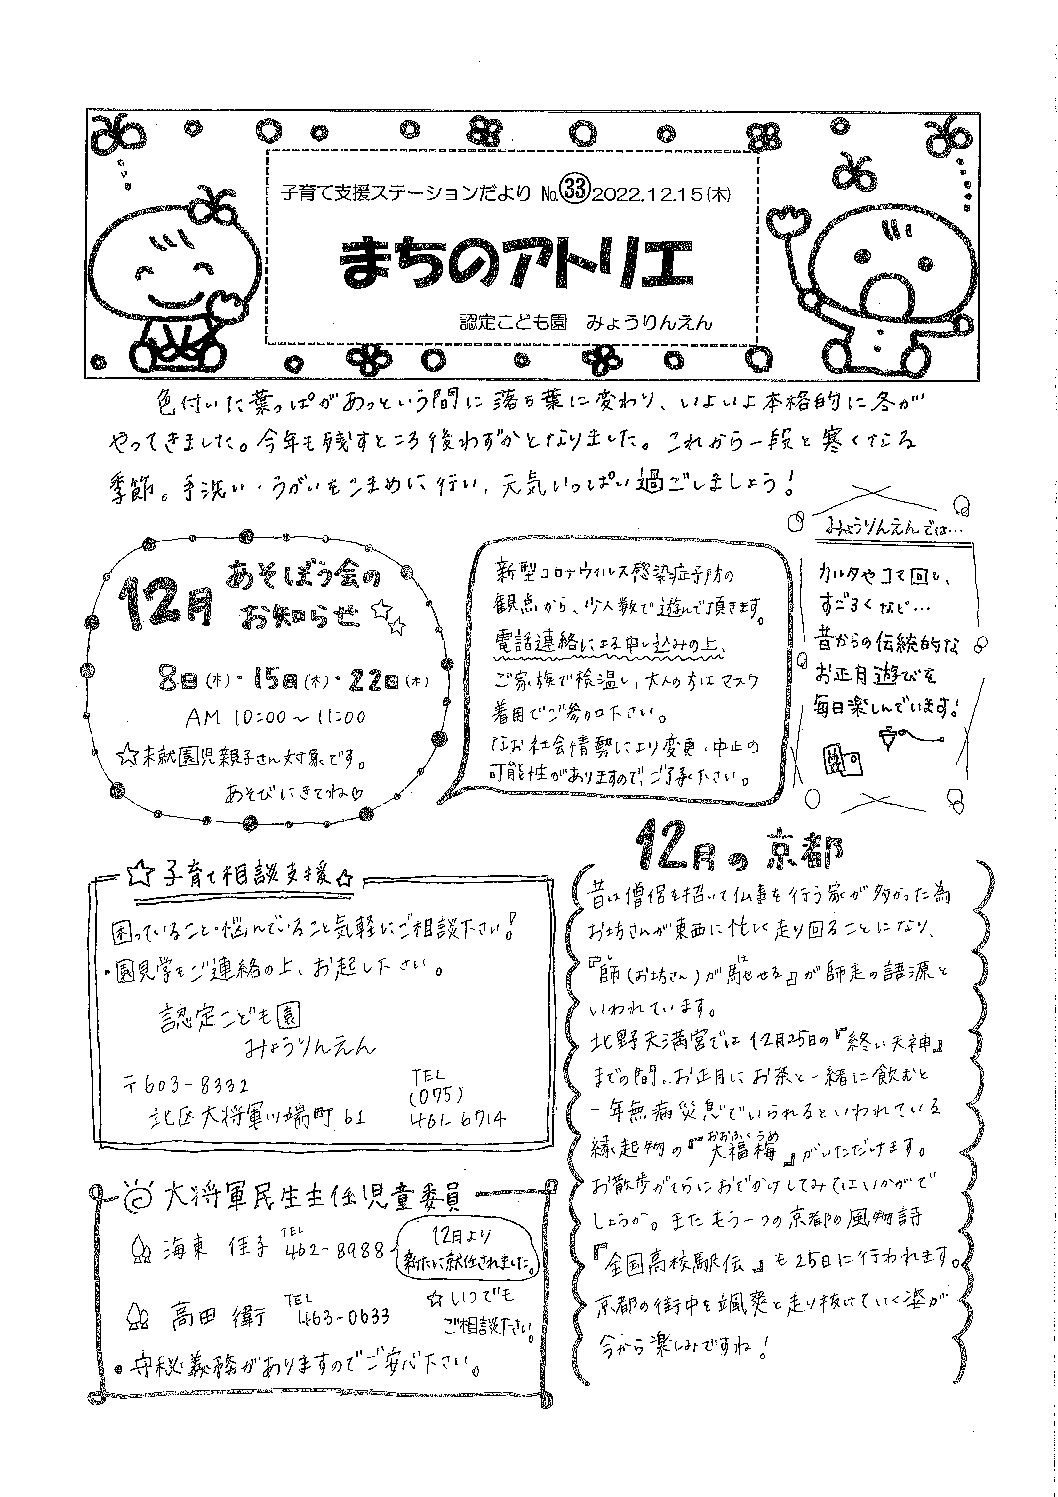 子育て支援ステーションだより No.㉝2022.12.15(木)
まちのアトリエ
認定こども園 みょうりんえん
色付いた葉っぱがあっという間に落ち葉に変わり、いよいよ本格的に冬が
やってきました。今年も残すところ後わずかとなりました。これから一段と寒くなる
季節。手洗い・うがいをこまめに行い、元気いっぱい過ごしましょう!
12月 あそぼう会の
お知らせ☆☆
8日(木)・15日(木)・22日(木)
AM 10:00〜11:00
☆未就園児親子さん対象です。
あそびにきてね♡
新型コロナウィルス感染症予防の
観点から、少人数で遊んで頂きます。
電話連絡による申し込みの上、
ご家族で検温し、大人の方はマスク
着用でご参加下さい。
なお社会情勢により変更・中止の
可能性がありますので、ご了承下さい。
みょうりんえんでは…
カルタやコマ回し、
すごろくなど…
昔からの伝統的な
お正月遊びを
毎日楽しんでいます!
☆子育て相談支援☆
困っていること・悩んでいること気軽にご相談下さい!
・園見学もご連絡の上、お越し下さい。
認定こども園
みょうりんえん
〒603-8332
北区大将軍川端町61
TEL
(075)
461-6714
大将軍民生主任児童委員
海東 佳子 TEL 462-8988
12月より
新たに就任されました。
高田 衛 TEL 463-0633
☆いつでも
ご相談下さい。
・守秘義務がありますのでご安心下さい。
12月の京都
昔は僧侶を招いて仏事を行う家が多かった為
お坊さんが東西に忙しく走り回ることになり、
『師(お坊さん)が馳せる』が師走の語源と
いわれています。
北野天満宮では12月25日の『終い天神』
までの間、お正月にお茶と一緒に飲むと
一年無病災息でいられるといわれている
縁起物の『大福梅』がいただけます。
おおふくうめ
お散歩がてらにおでかけしてみてはいかがで
しょうか。またもう一つの京都の風物詩
『全国高校駅伝』も25日に行われます。
京都の街中を颯爽と走り抜けていく姿が
今から楽しみですね!